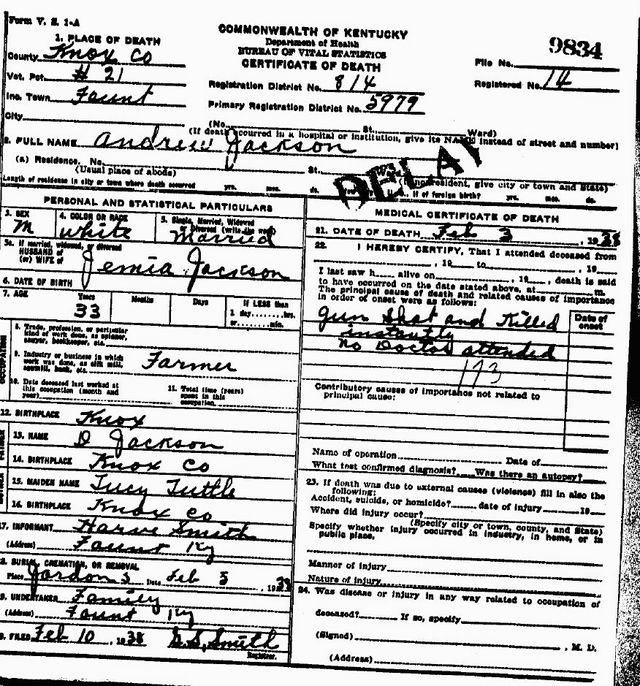 Form V. S. 1-A
COMMONWEALTH OF KENTUCKY
Department of Health
BUREAU OF VITAL STATISTICS
CERTIFICATE OF DEATH
9834
File No.
Registered No. 14
1. PLACE OF DEATH
County Knox Co
Vot. Pct. # 21
Inc. Town Faunt
City
Registration District No. 814
Primary Registration District No. 5979
(No. St. Ward)
(If death occurred in a hospital or institution, give its NAME instead of street and number)
2. FULL NAME Andrew Jackson
(a) Residence, No. St.
(Usual place of abode) (If nonresident, give city or town and State)
Length of residence in city or town where death occurred yrs. mos. ds. if of foreign birth? yrs. mos. ds.
DELAY
PERSONAL AND STATISTICAL PARTICULARS
3. SEX M
4. COLOR OR RACE White
5. Single, Married, Widowed
Divorced (write the word) Married
5a. If married, widowed, or divorced
HUSBAND of
(or) WIFE of Jemia Jackson
6. DATE OF BIRTH
7. AGE Years Months Days If LESS than
33 1 day,......hrs.
or......min.
OCCUPATION
8. Trade, profession, or particular
kind of work done, as spinner,
sawyer, bookkeeper, etc.
9. Industry or business in which
work was done, as silk mill,
sawmill, bank, etc. Farmer
10. Date deceased last worked at
this occupation (month and
year)
11. Total time (years)
spent in this
occupation
12. BIRTHPLACE Knox
13. NAME D Jackson
14. BIRTHPLACE Knox Co
15. MAIDEN NAME Lucy Tuttle
16. BIRTHPLACE Knox Co
17. INFORMANT Harve Smith
(Address) Faunt Ky
18. BURIAL, CREMATION, OR REMOVAL
Place Jordons Date Feb 5 1938
19. UNDERTAKER Family
(Address) Faunt Ky
FILED Feb 10, 1938 G.S. Smith
Registrar.
MEDICAL CERTIFICATE OF DEATH
21. DATE OF DEATH Feb 3, 1938
22. I HEREBY CERTIFY, That I attended deceased from
, 19 to , 19
I last saw h alive on , 19 , death is said
to have occurred on the date stated above, at m.
The principal cause of death and related causes of importance
in order of onset were as follows:
Date of
onset
Gun Shot and Killed
instantly
No Doctor attended
173
Contributory causes of importance not related to
principal cause:
Name of operation Date of
What test confirmed diagnosis? Was there an autopsy?
23. If death was due to external causes (violence) fill in also the
following:
Accident, suicide, or homicide? date of injury 19
Where did injury occur?
(Specify city or town, county, and State)
Specify whether injury occurred in industry, in home, or in
public place.
Manner of injury
Nature of injury
24. Was disease or injury in any way related to occupation of
deceased? If so, specify
(Signed) , M. D.
(Address)